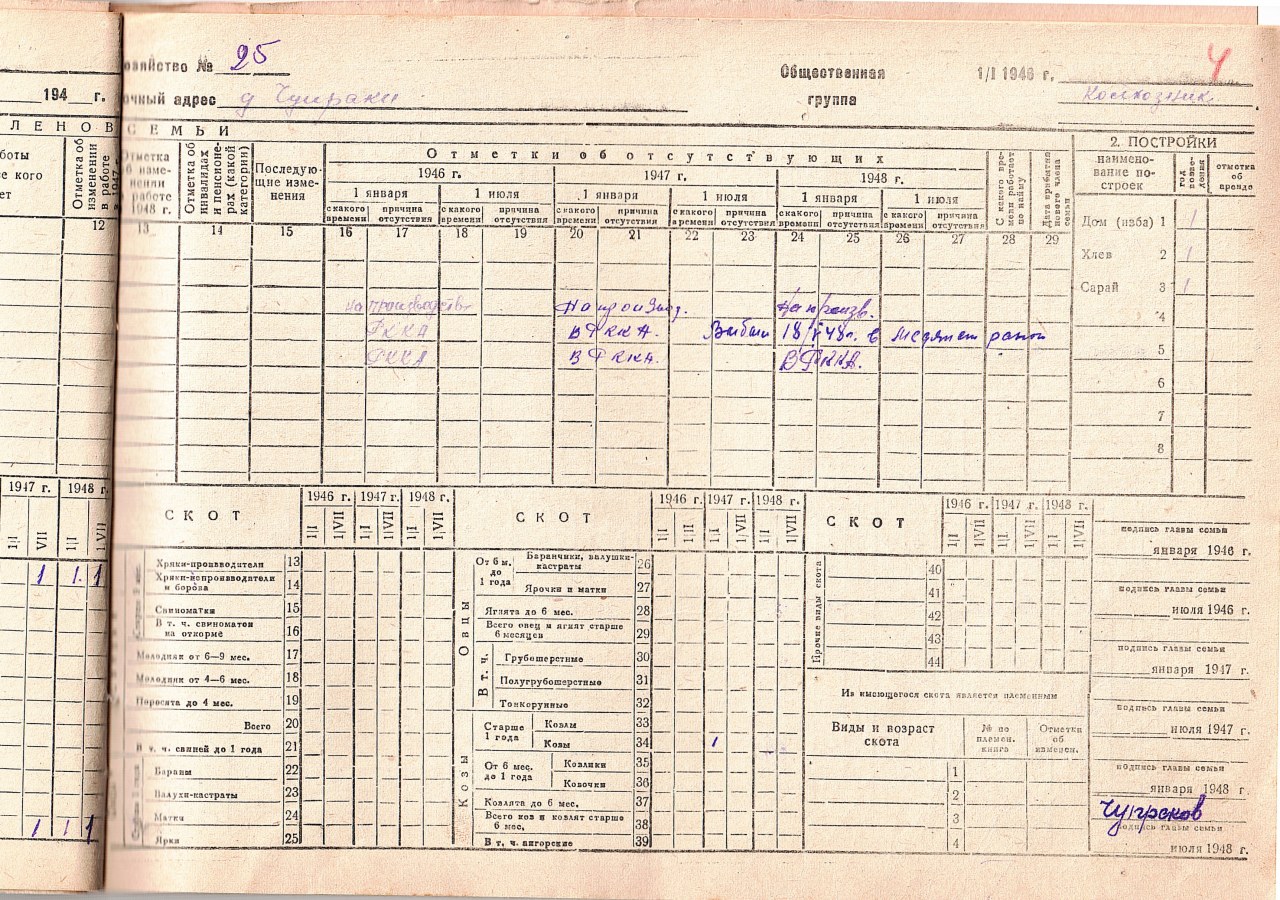 озяйство № 25
Общественная 1/I 1946 г. 4
194 г.
очный адрес д Чушраки
группа
Колхозник
ЛЕНОВ СЕМЬИ
2. ПОСТРОЙКИ
боты
е кого
ет
Отметка об изменении в работе в 1947
12
Отметка об изменении работе 1948 г.
13
Отметка об инвалидах и пенсионерах (какой категории)
14
Последующие изменения
15
Отметки об отсутствующих
1946 г. 1947 г. 1948 г.
1 января 1 июля 1 января 1 июля 1 января 1 июля
с какого времени причина отсутствия с какого времени причина отсутствия с какого времени причина отсутствия с какого времени причина отсутствия с какого времени причина отсутствия с какого времени причина отсутствия
16 17 18 19 20 21 22 23 24 25 26 27 28 29
С какого времени работает по найму
Дата прибытия нового члена семьи
наименование построек
год возведения
отметка об аренде
Дом (изба) 1 1
Хлев 2 1
Сарай 3 1
4
5
6
7
8
на производств На производ. На произв.
РККА В РККА. Выбыл 18/V 48 г. в Медянск район
РККА В РККА. В РККА.
1947 г. 1948 г.
1|I VII 1|I 1|VII
1 1. 1
1 1 1
СКОТ 1946 г. 1947 г. 1948 г.
1|I 1|VII 1|I 1|VII 1|I 1|VII
Хряки-производители 13
Хряки-непроизводители и борова 14
Свиноматки 15
В т. ч. свиноматок на откорме 16
Молодняк от 6—9 мес. 17
Молодняк от 4—6 мес. 18
Поросята до 4 мес. 19
Всего 20
В т. ч. свиней до 1 года 21
Бараны 22
Валухи-кастраты 23
Матки 24
Ярки 25
СКОТ 1946 г. 1947 г. 1948 г.
1|I 1|II 1|I 1|VII 1|I 1|VII
Овцы
От 6 м. до 1 года
Баранчики, валушки-кастраты 26
Ярочки и матки 27
Ягнята до 6 мес. 28
Всего овец и ягнят старше 6 месяцев 29
В т. ч.
Грубошерстные 30
Полугрубошерстные 31
Тонкорунные 32
Козы
Старше 1 года
Козлы 33
Козы 34 1
От 6 мес. до 1 года
Козлики 35
Козочки 36
Козлята до 6 мес. 37
Всего коз и козлят старше 6 мес. 38
В т. ч. ангорские 39
СКОТ 1946 г. 1947 г. 1948 г.
1|I 1|VII 1|I 1|VII 1|I 1|VII
Прочие виды скота
40
41
42
43
44
Из имеющегося скота является племенным
Виды и возраст скота
№ по племен. книга
Отметки об изменен.
1
2
3
4
подпись главы семьи
января 1946 г.
подпись главы семьи
июля 1946 г.
подпись главы семьи
января 1947 г.
подпись главы семьи
июля 1947 г.
подпись главы семьи
января 1948 г.
Чушраков
подпись главы семьи
июля 1948 г.